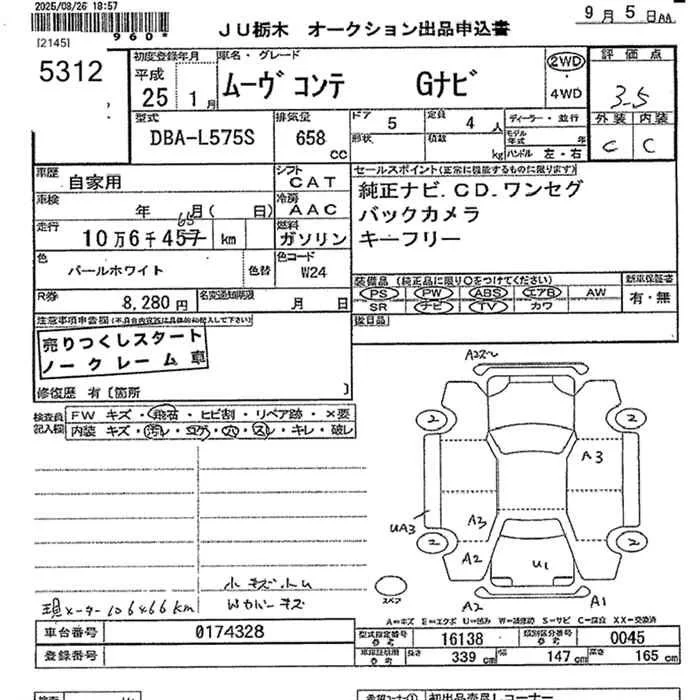 2025/08/26 18:57
9月5日AA
960*
[2145]
JU栃木 オークション出品申込書
5312
初度登録年月
平成
25 1月
車名・グレード
ムーヴ コンテ Gナビ
2WD
・
4WD
評価点
3.5
型式
DBA-L575S
排気量
658 cc
ドア 5
定員 4 人
形状
積数 kg
ディーラー・並行
モデル年式 年
ハンドル 左・右
外装 内装
C C
車歴
自家用
シフト
CAT
セールスポイント(正常に機能するものに限ります)
純正ナビ.CD.ワンセグ
バックカメラ
キーフリー
車検
年 月( 日)
冷房
AAC
走行
10万6千457 km
65
燃料
ガソリン
色
パールホワイト
色替
色コード
W24
R券
8,280円
名変通知期限
月 日
装備品 (純正品に限り○をつけてください)
PS PW ABS エアB AW
SR ナビ TV カワ
新車保証書
有・無
後日品
注意事項申告欄
売りつくしスタート
ノークレーム車
修復歴 有〔箇所 〕
検査員
記入欄
FW キズ・飛石・ヒビ割・リペア跡・×要
内装 キズ・汚レ・コゲ・穴・スレ・キレ・破レ
A2
2 2
A3
UA3
A3
2 2
A2
U1
A2 A1
スペア
小キズ・凹
Wカバーキズ
現メーター 106466km
A=キズ E=エクボ U=凹み W=補修跡 S=サビ C=腐食 XX=交換済
車台番号 0174328
型式指定番号 16138
類別区分番号 0045
登録番号
長さ 339 cm 幅 147 cm 高さ 165 cm
希望コーナー① 初出品売尽しコーナー